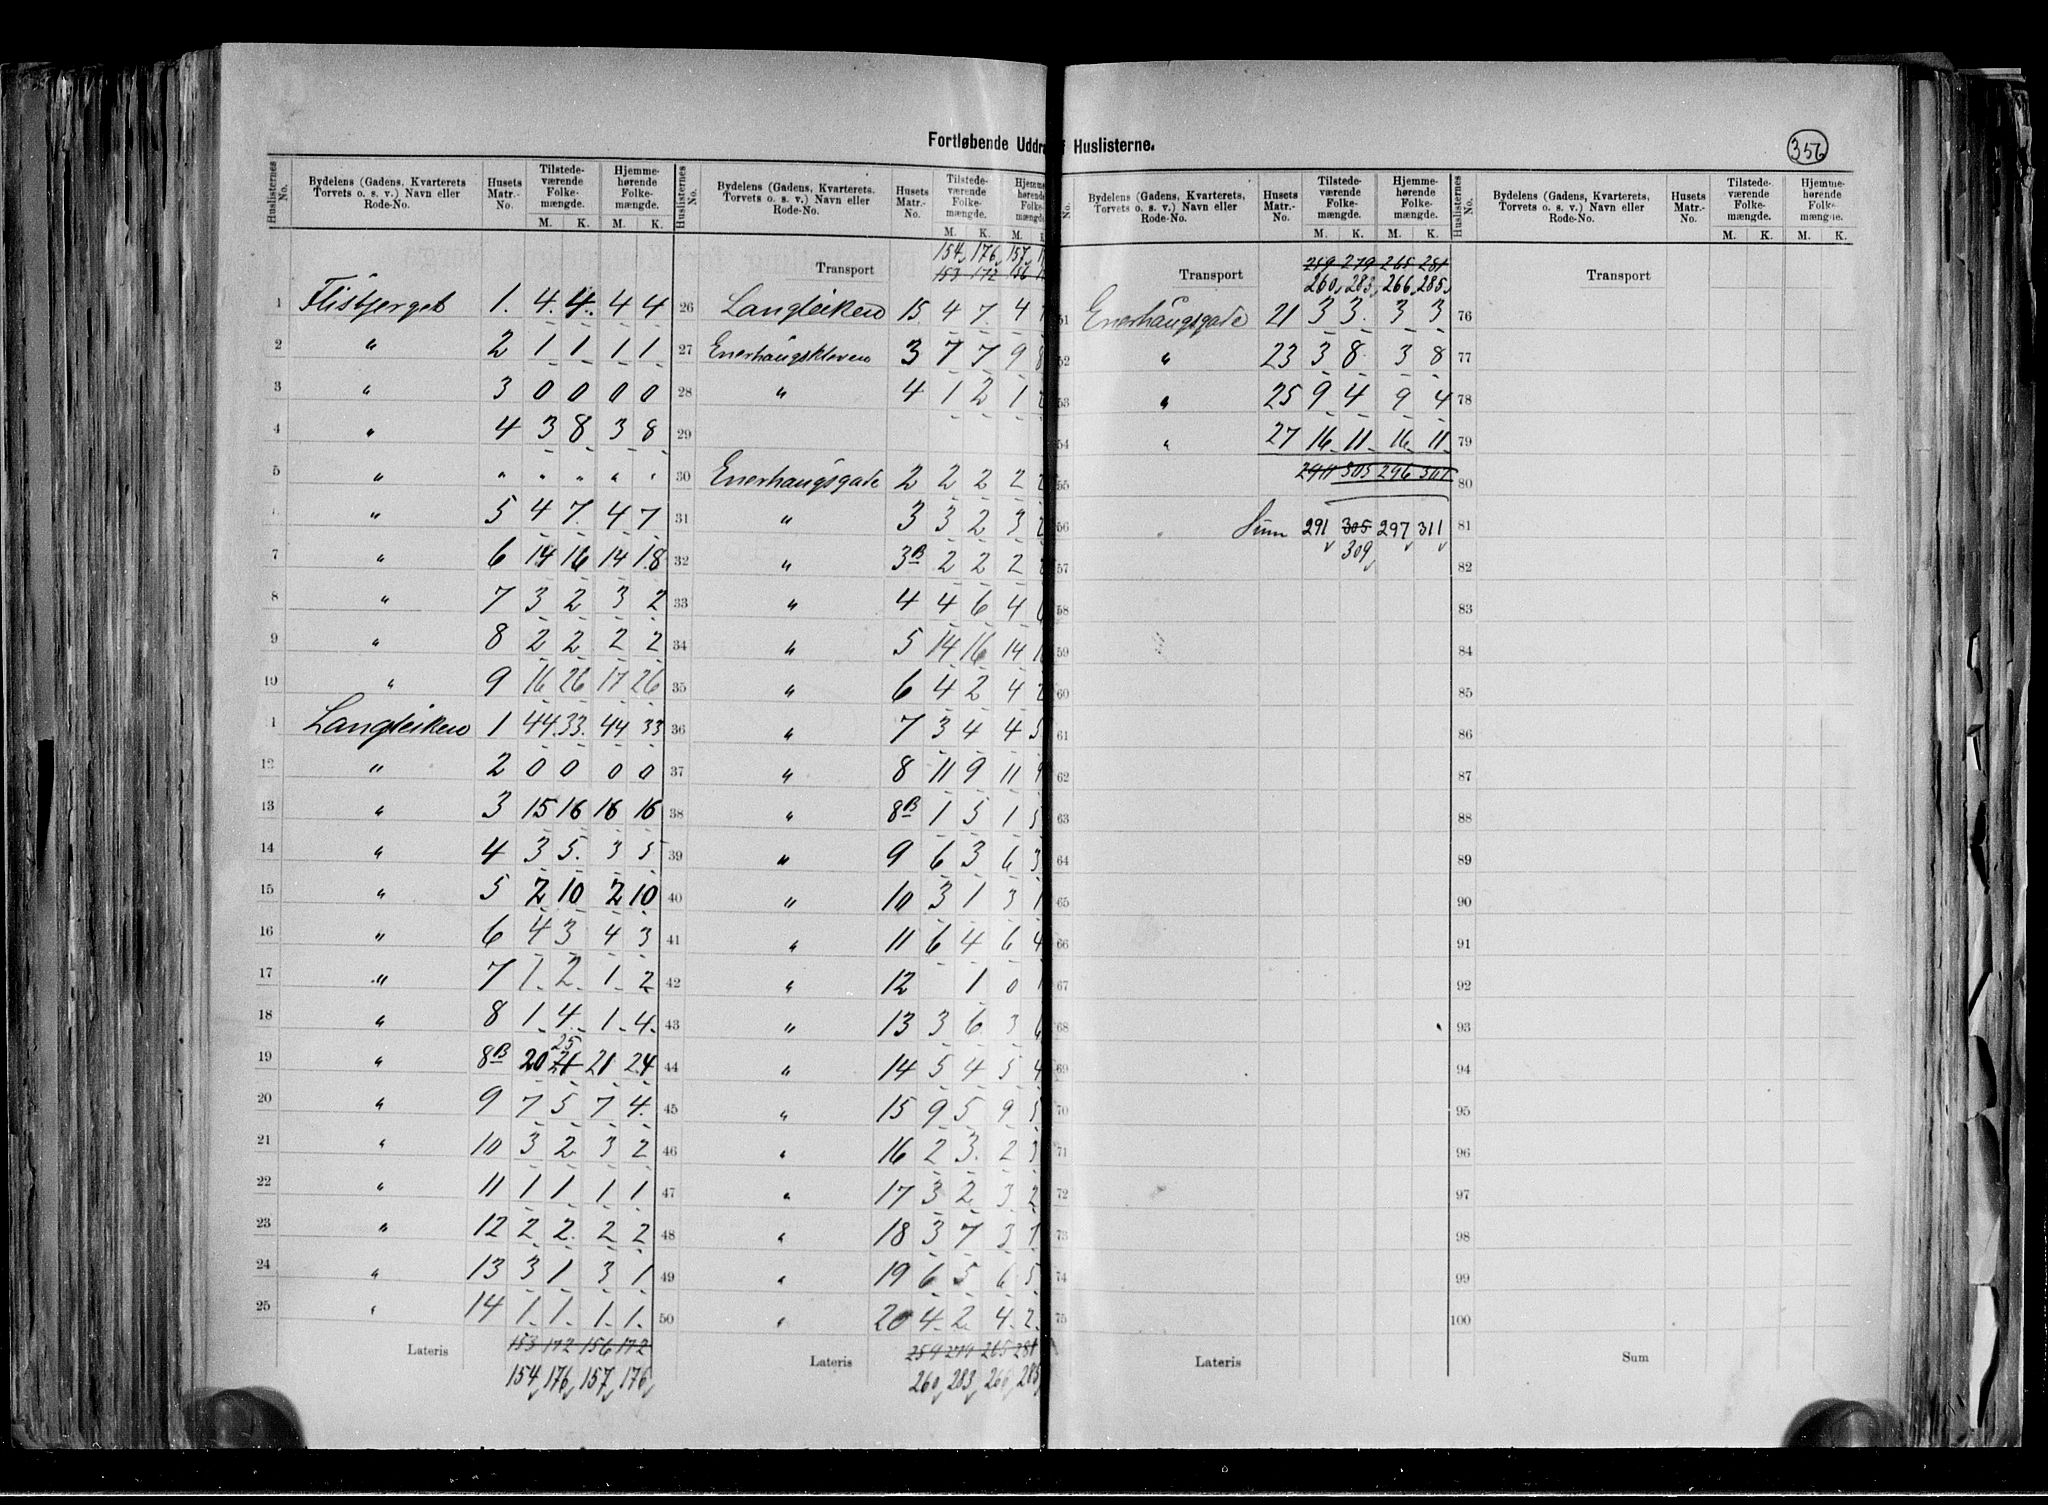 Fortløbende Uddra f Huslisterne.
356
Huslisternes No. Bydelens (Gadens, Kvarterets Torvets o. s. v.) Navn eller Rode-No. Husets Matr.-No. Tilstede-værende Folke-mængde. M. K. Hjemme-hørende Folke-mængde. M. K.
1 Flisbjerget 1. 4. 4. 4 4
2 " 2 1 1 1 1
3 " 3 0 0 0 0
4 " 4 3 8 3 8
5 " " " " " "
" 5 4 7. 4 7
7 " 6 14 16 14 18
8 " 7 3 2 3 2
9 " 8 2 2 2 2
10 " 9 16 26 17 26
1 Langleiken 1 44. 33. 44 33
12 " 2 0 0 0 0
13 " 3 15 16 16 16
14 " 4 3 5. 3 5
15 " 5 2 10 2 10
16 " 6 4 3 4 3
17 " 7 1. 2. 1. 2
18 " 8 1. 4. 1. 4.
19 " 8B 20 21 25 21 24
20 " 9 7 5 7 4.
21 " 10 3 2. 3 2
22 " 11 1 1 1 1
23 " 12 2 2. 2 2
24 " 13 3 1 3 1
25 " 14 1. 1. 1. 1.
Lateris 153 172 156 172
154 176 157 176
Huslisternes No. Bydelens (Gadens, Kvarterets. Torvets o. s. v.) Navn eller Rode-No. Husets Matr.-No. Tilstede-værende Folke-mængde. M. K. Hjemme hørende Folke-mængde M.
154 176 157
Transport 153 172 156
26 Langleiken 15. 4 7. 4
27 Enerhaugskleven 3 7 7 9 8
28 " 4 1 2 1 2
29
30 Enerhaugsgade 2 2 2 2 2
31 " 3 3 2 3 2
32 " 3B 2 2 2 2
33 " 4 4 6 4 6
34 " 5 14 16 14 1
35 " 6 4 2 4 2
36 " 7 3 4 4 5
37 " 8 11 9 11 9
38 " 8B 1 5 1 5
39 " 9 6 3 6 3
40 " 10 3 1 3 1
41 " 11 6 4 6 4
42 " 12 1 0 1
43 " 13 3 6. 3 6
44 " 14 5 4 5 4
45 " 15 9 5 9 5
46 " 16 2 3. 2 3
47 " 17 3 2 3 2
48 " 18 3 7 3 7
49 " 19 6 5 6 5
50 " 20 4. 2. 4. 2.
Lateris 259 279 265 281
260 283 266 285
No. Bydelens (Gadens, Kvarterets, Torvets o. s. v.) Navn eller Rode-No. Husets Matr.-No. Tilstede-værende Folke-mængde. M. K. Hjemme-hørende Folke-mængde. M. K.
Transport 259 279 265 281
260 283 266 285
51 Enerhaugsgade 21 3 3. 3 3
52 " 23 3 8. 3 8
53 " 25 9 4 9 4
54 " 27 16 11 16 11
55 305 296
56 Sum 291 305 297 311
57 309
58
59
60
61
62
63
64
65
66
67
68
69
70
71
72
73
74
75
Lateris
Huslisternes No. Bydelens (Gadens, Kvarterets Torvets o. s. v.) Navn eller Rode-No. Husets Matr.-No. Tilstede-værende Folke-mængde. M. K. Hjemme-hørende Folke-mængde. M. K.
Transport
76
77
78
79
80
81
82
83
84
85
86
87
88
89
90
91
92
93
94
95
96
97
98
99
100
Sum